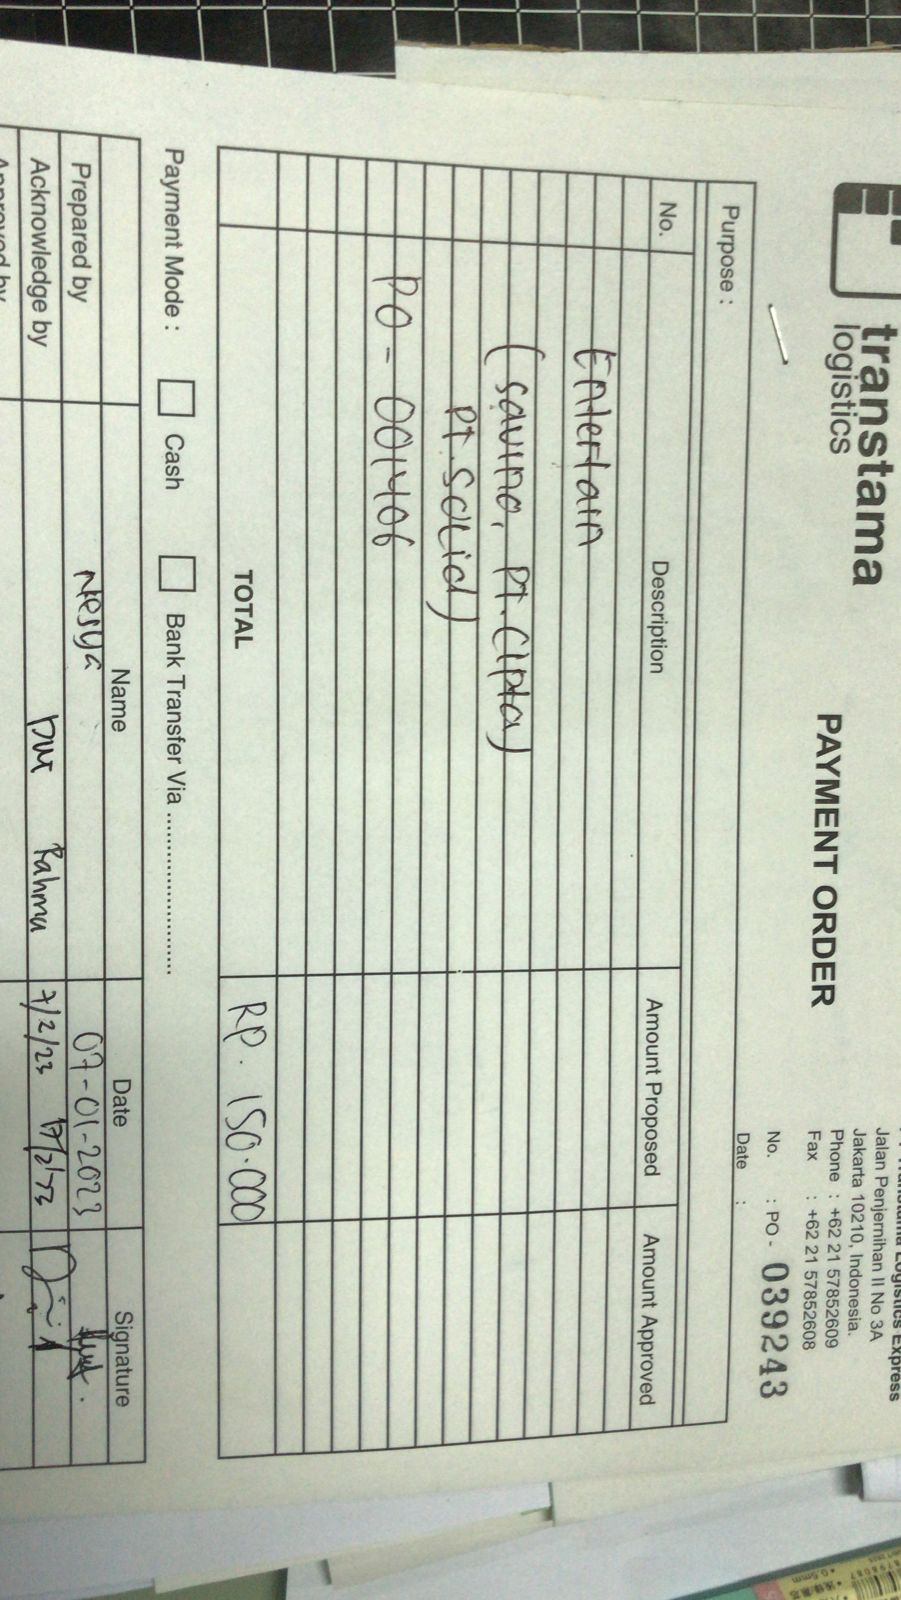 transtama
logistics
PAYMENT ORDER
Logistics Express
Jalan Penjernihan II No 3A
Jakarta 10210, Indonesia.
Phone : +62 21 57852609
Fax : +62 21 57852608
No. : PO - 039243
Date :
Purpose :
No. Description Amount Proposed Amount Approved
Entertain
(savino, PT. Cipta)
PT. Solid)
PO - 001406
TOTAL RP. 150.000
Payment Mode : Cash Bank Transfer Via ........................
Name Date Signature
Prepared by Nesya 07-01-2023
Acknowledge by Rahma 7/2/23
Approved by